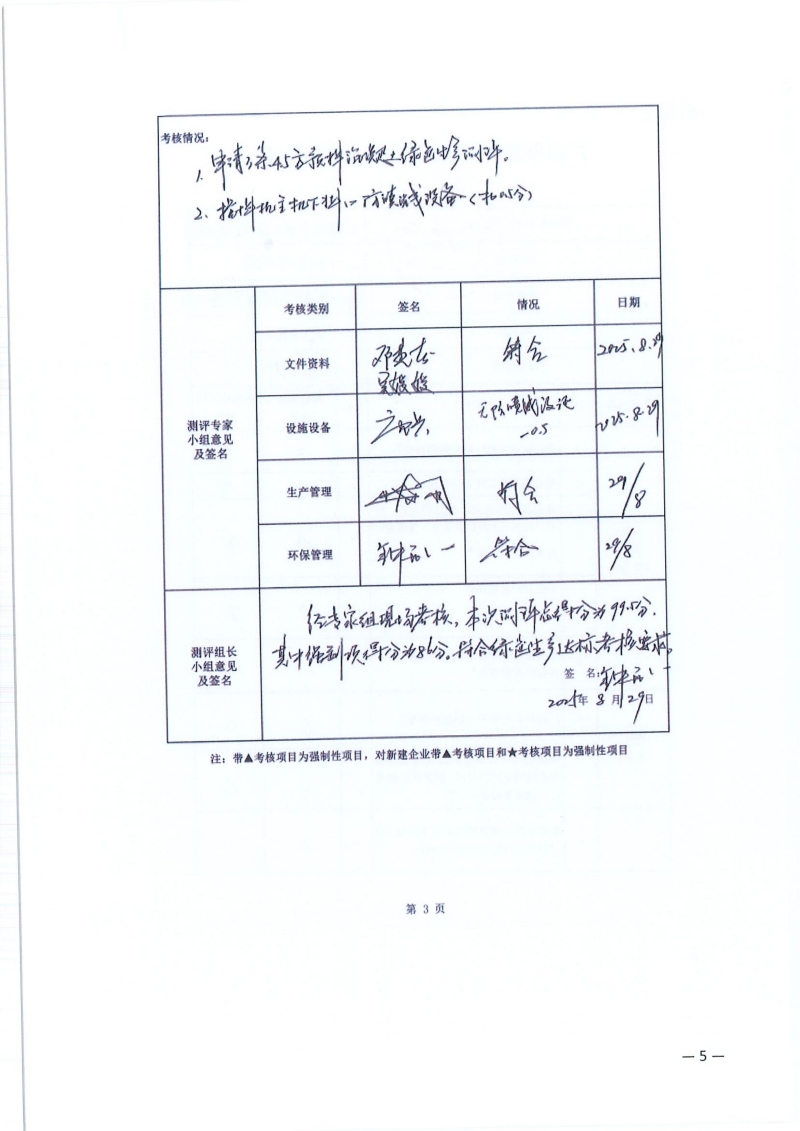 考核情况：
1、申请3条4.5方预拌混凝土绿色生产测评。
2、搅拌机主机下料口防喷溅设备（扣0.5分）
考核类别 签名 情况 日期
测评专家小组意见及签名
文件资料 符合 2025.8.29
设施设备 无防喷溅设施 -0.5 2025.8.29
生产管理 符合 29/8
环保管理 符合 29/8
测评组长小组意见及签名
经专家组现场考核，本次测评总得分为99.5分，
其中强制项得分为86分。符合绿色生产达标考核要求。
签 名：
2025年 8 月 29日
注：带▲考核项目为强制性项目，对新建企业带▲考核项目和★考核项目为强制性项目
第 3 页
— 5 —